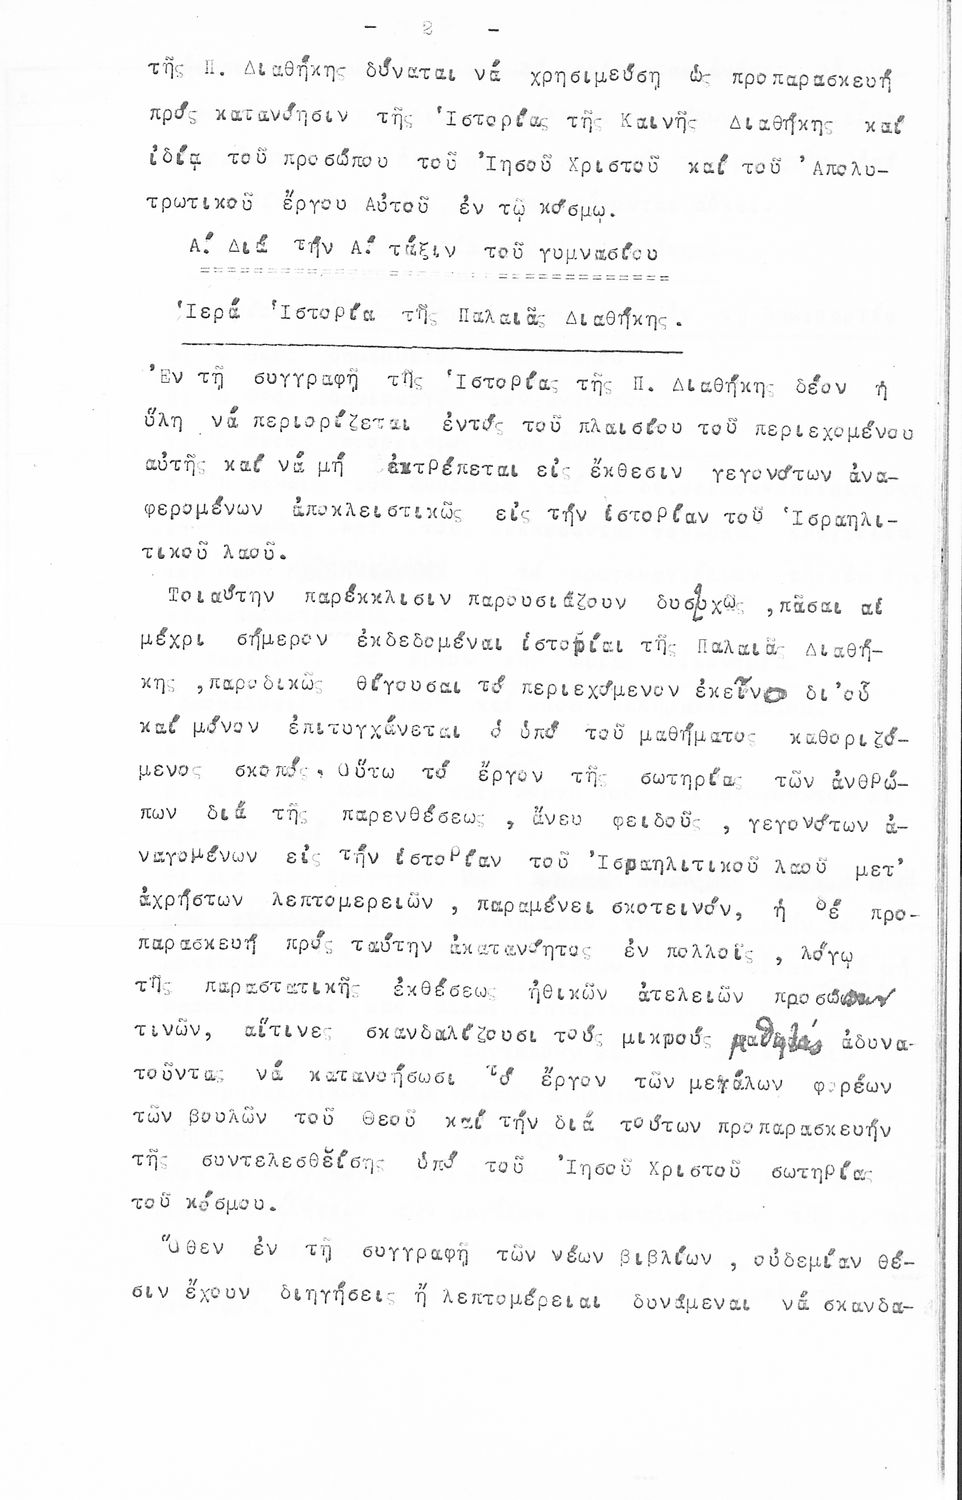 - 2 -
τῆς Π. Διαθήκης δύναται νά χρησιμεύσῃ ὡς προπαρασκευή
πρός κατανόησιν τῆς Ἱστορίας τῆς Καινῆς Διαθήκης καί
ἰδίᾳ τοῦ προσώπου τοῦ Ἰησοῦ Χριστοῦ καί τοῦ Ἀπολυ-
τρωτικοῦ ἔργου Αὐτοῦ ἐν τῷ κόσμῳ.
Α.' Διά τήν Α.' τάξιν τοῦ γυμνασίου
Ἱερά Ἱστορία τῆς Παλαιᾶς Διαθήκης.
Ἐν τῇ συγγραφῇ τῆς Ἱστορίας τῆς Π. Διαθήκης δέον ἡ
ὕλη νά περιορίζεται ἐντός τοῦ πλαισίου τοῦ περιεχομένου
αὐτῆς καί νά μή ἐκτρέπεται εἰς ἔκθεσιν γεγονότων ἀνα-
φερομένων ἀποκλειστικῶς εἰς τήν ἱστορίαν τοῦ Ἰσραηλι-
τικοῦ λαοῦ.
Τοιαύτην παρέκκλισιν παρουσιάζουν δυστυχῶς ,πᾶσαι αἱ
μέχρι σήμερον ἐκδεδομέναι ἱστορίαι τῆς Παλαιᾶς Διαθή-
κης ,παροδικῶς θίγουσαι τό περιεχόμενον ἐκεῖνο δι'οὗ
καί μόνον ἐπιτυγχάνεται ὁ ὑπό τοῦ μαθήματος καθοριζό-
μενος σκοπός. Οὕτω τό ἔργον τῆς σωτηρίας τῶν ἀνθρώ-
πων διά τῆς παρενθέσεως , ἄνευ φειδοῦς , γεγονότων ἀ-
ναγομένων εἰς τήν ἱστορίαν τοῦ Ἰσραηλιτικοῦ λαοῦ μετ'
ἀχρήστων λεπτομερειῶν , παραμένει σκοτεινόν, ἡ δέ προ-
παρασκευή πρός ταύτην ἀκατανόητος ἐν πολλοῖς , λόγῳ
τῆς παραστατικῆς ἐκθέσεως ἠθικῶν ἀτελειῶν προσώπων
τινῶν, αἵτινες σκανδαλίζουσι τούς μικρούς μαθητάς ἀδυνα-
τοῦντας νά κατανοήσωσι τό ἔργον τῶν μεγάλων φορέων
τῶν βουλῶν τοῦ Θεοῦ καί τήν διά τούτων προπαρασκευήν
τῆς συντελεσθείσης ὑπό τοῦ Ἰησοῦ Χριστοῦ σωτηρίας
τοῦ κόσμου.
Ὅθεν ἐν τῇ συγγραφῇ τῶν νέων βιβλίων , οὐδεμίαν θέ-
σιν ἔχουν διηγήσεις ἤ λεπτομέρειαι δυνάμεναι νά σκανδα-